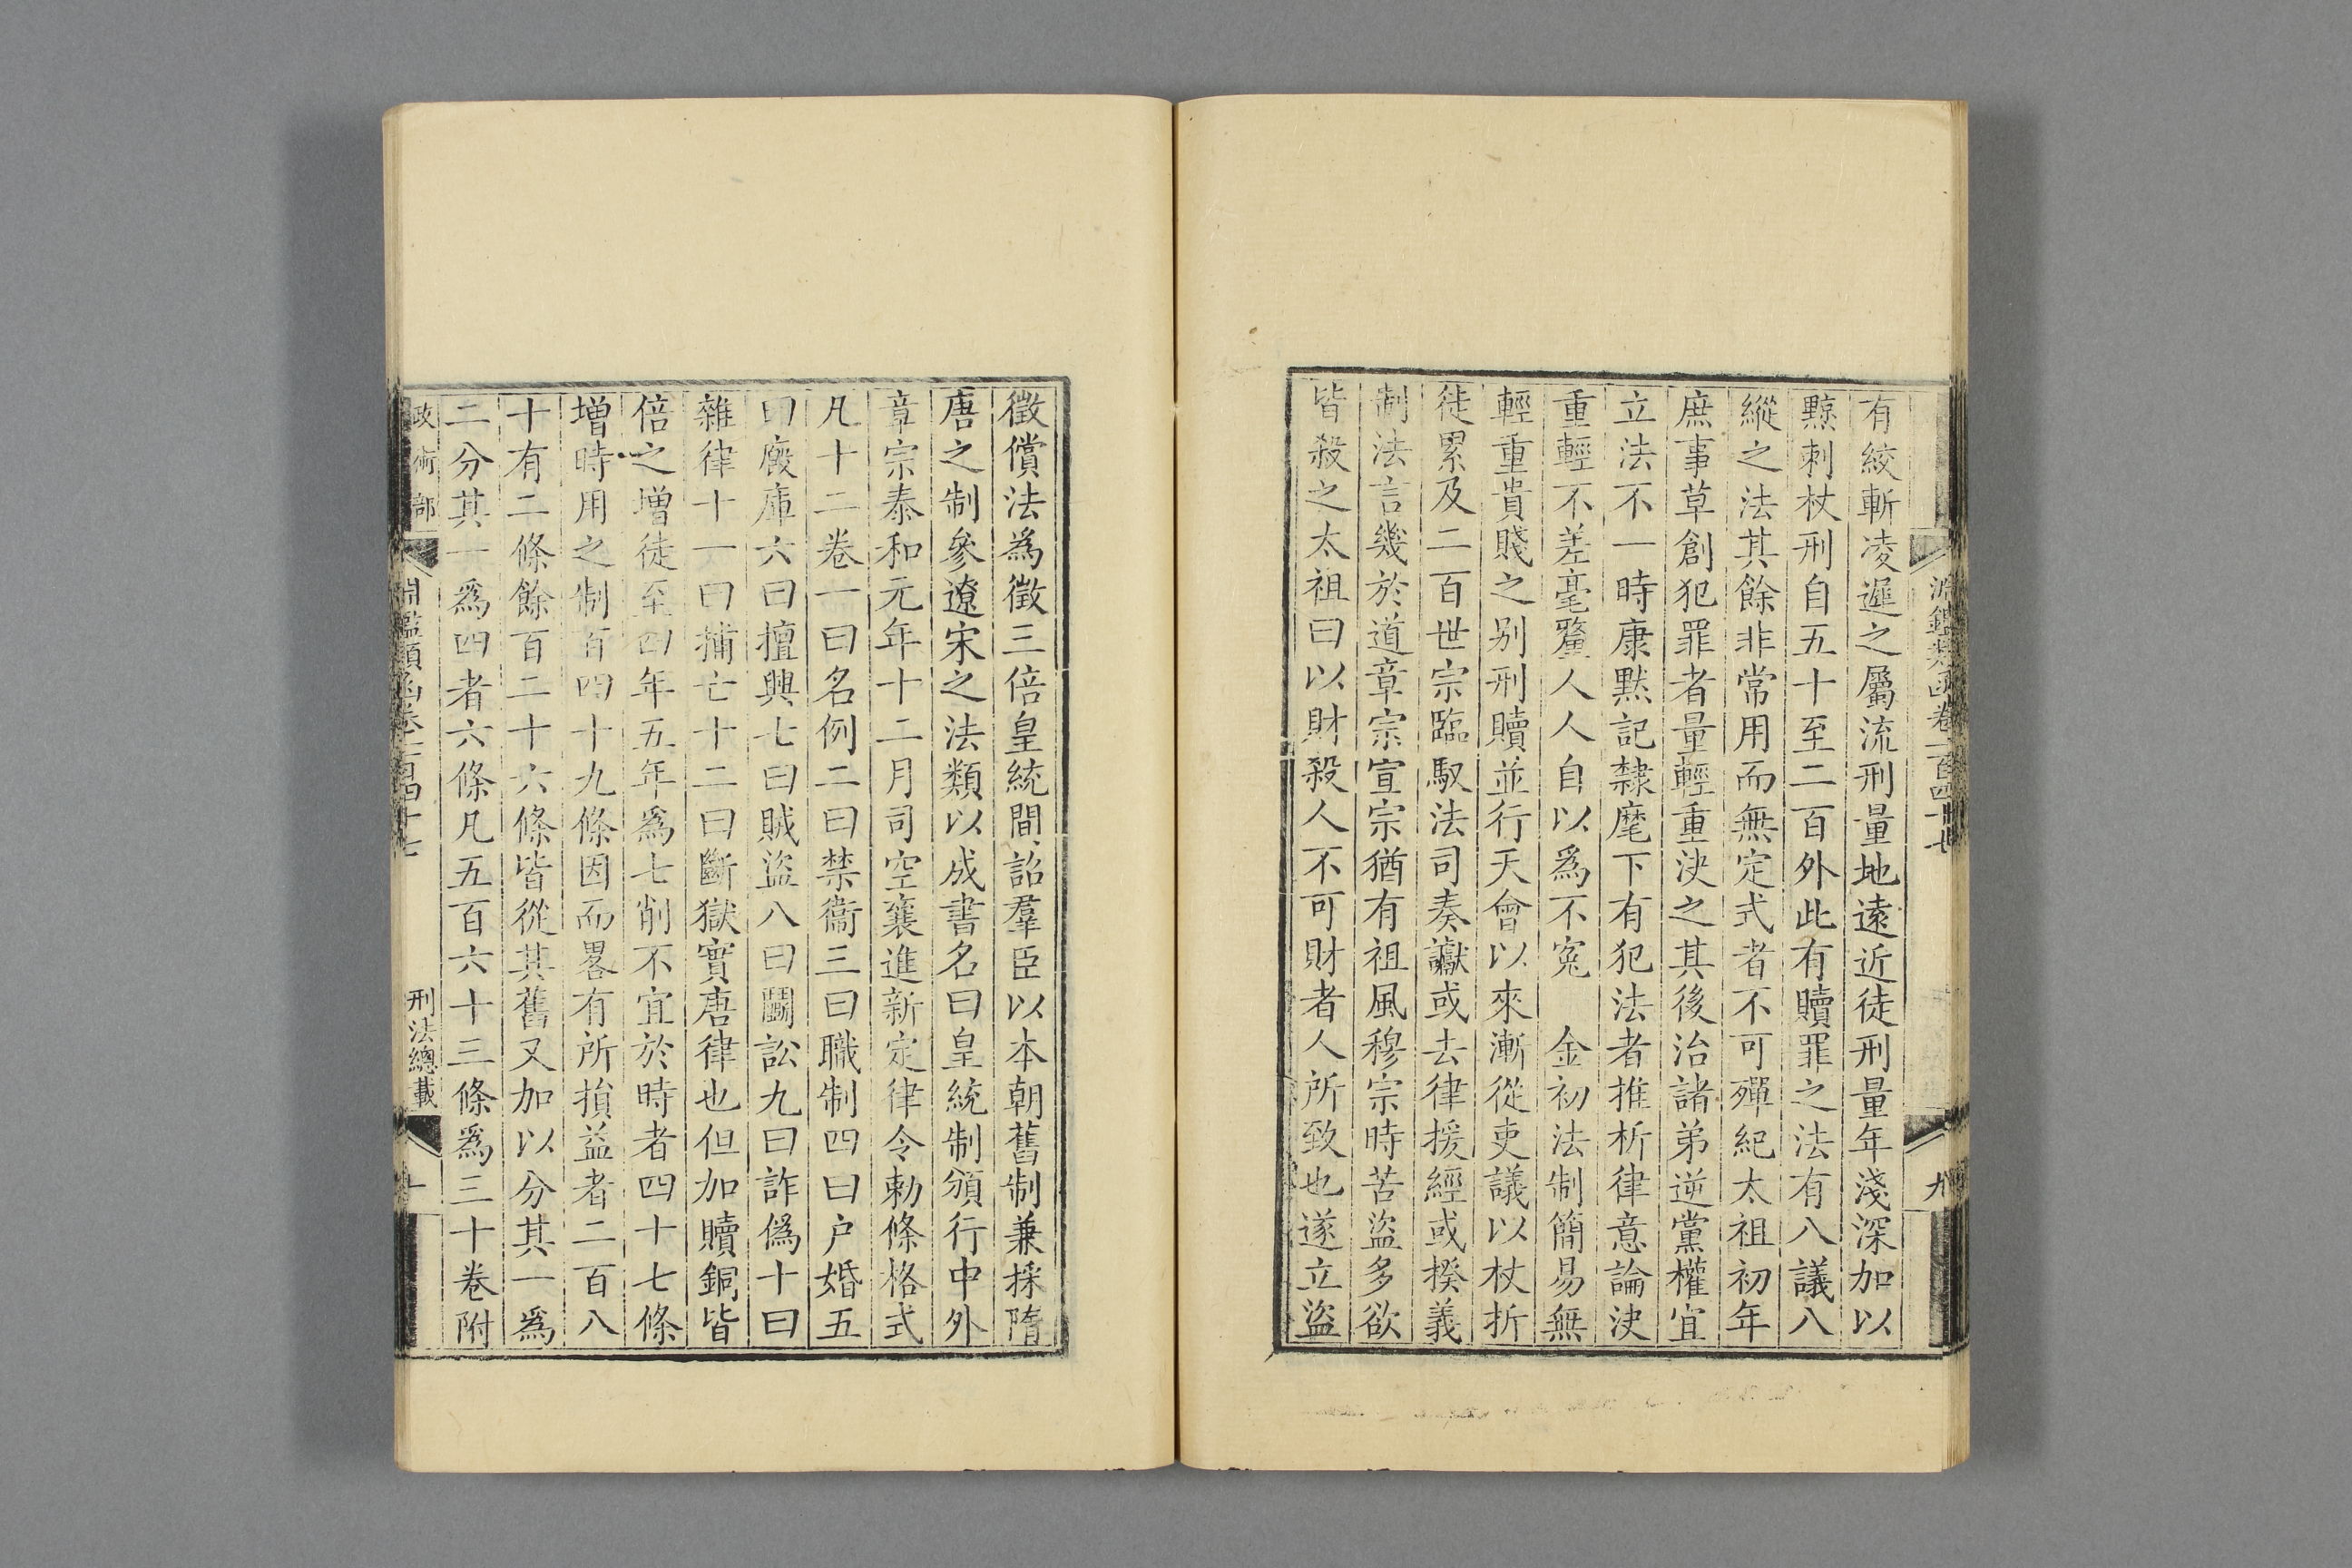 淵鑑類函卷一百四十七
九
有絞斬凌遲之屬流刑量地遠近徒刑量年淺深加以
黥刺杖刑自五十至二百外此有贖罪之法有八議八
縱之法其餘非常用而無定式者不可殫紀太祖初年
庶事草創犯罪者量輕重決之其後治諸弟逆黨權宜
立法不一時康默記隸麾下有犯法者推析律意論決
重輕不差毫釐人人自以爲不寃　金初法制簡易無
輕重貴賤之别刑贖並行天會以來漸從吏議以杖折
徒累及二百世宗臨馭法司奏讞或去律援經或揆義
制法言幾於道章宗宣宗猶有祖風穆宗時苦盜多欲
皆殺之太祖曰以財殺人不可財者人所致也遂立盜
徵償法爲徵三倍皇統間詔羣臣以本朝舊制兼採隋
唐之制參遼宋之法類以成書名曰皇統制頒行中外
章宗泰和元年十二月司空襄進新定律令勅條格式
凡十二卷一曰名例二曰禁衞三曰職制四曰户婚五
曰廄庫六曰擅興七曰賊盜八曰鬬訟九曰詐僞十曰
雜律十一曰捕亡十二曰斷獄實唐律也但加贖銅皆
倍之增徒至四年五年爲七削不宜於時者四十七條
增時用之制百四十九條因而畧有所損益者二百八
十有二條餘百二十六條皆從其舊又加以分其一爲
二分其一爲四者六條凡五百六十三條爲三十卷附
政術部
淵鑑類函卷一百四十七
刑法總載
十